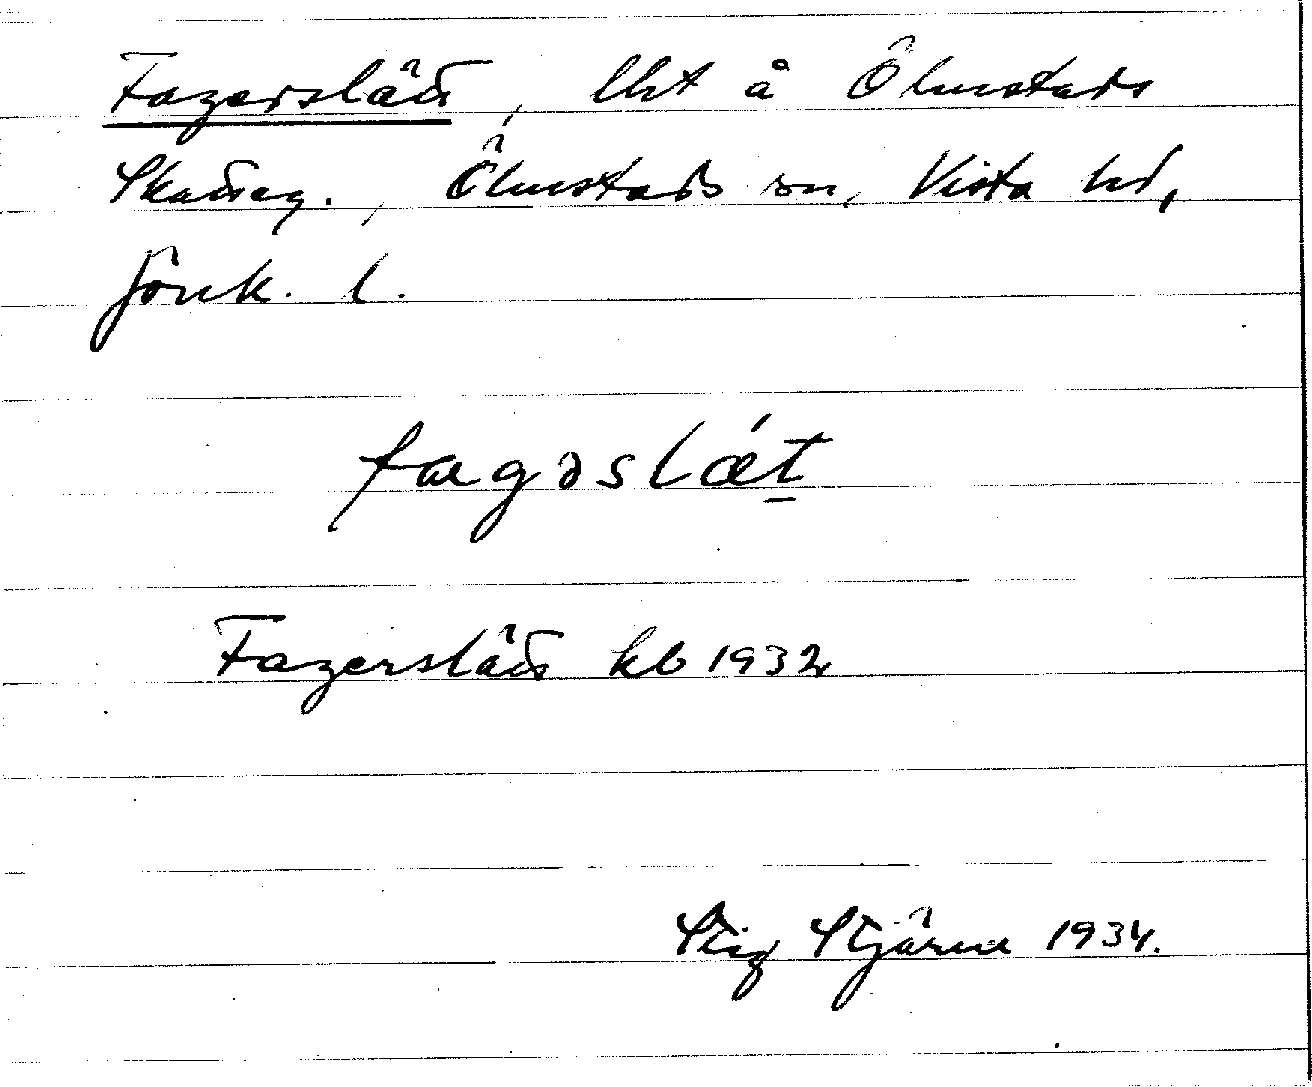 Fagerslätt, lht å Ölmstads
Skatteg., Ölmstads sn, Vista hd,
Jönk. l.
fagəslǽt
Fagerslätt kb 1932
Stig Stjärne 1934.